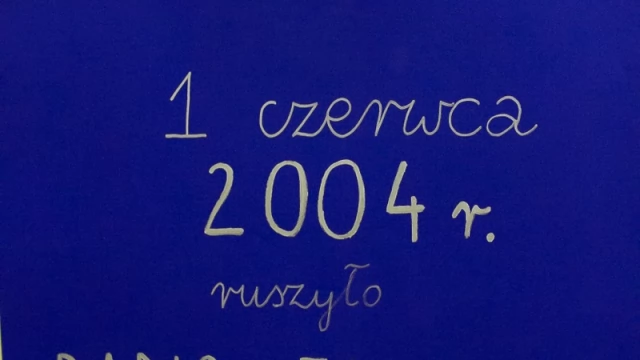 1 czerwca
2004 r.
ruszyło